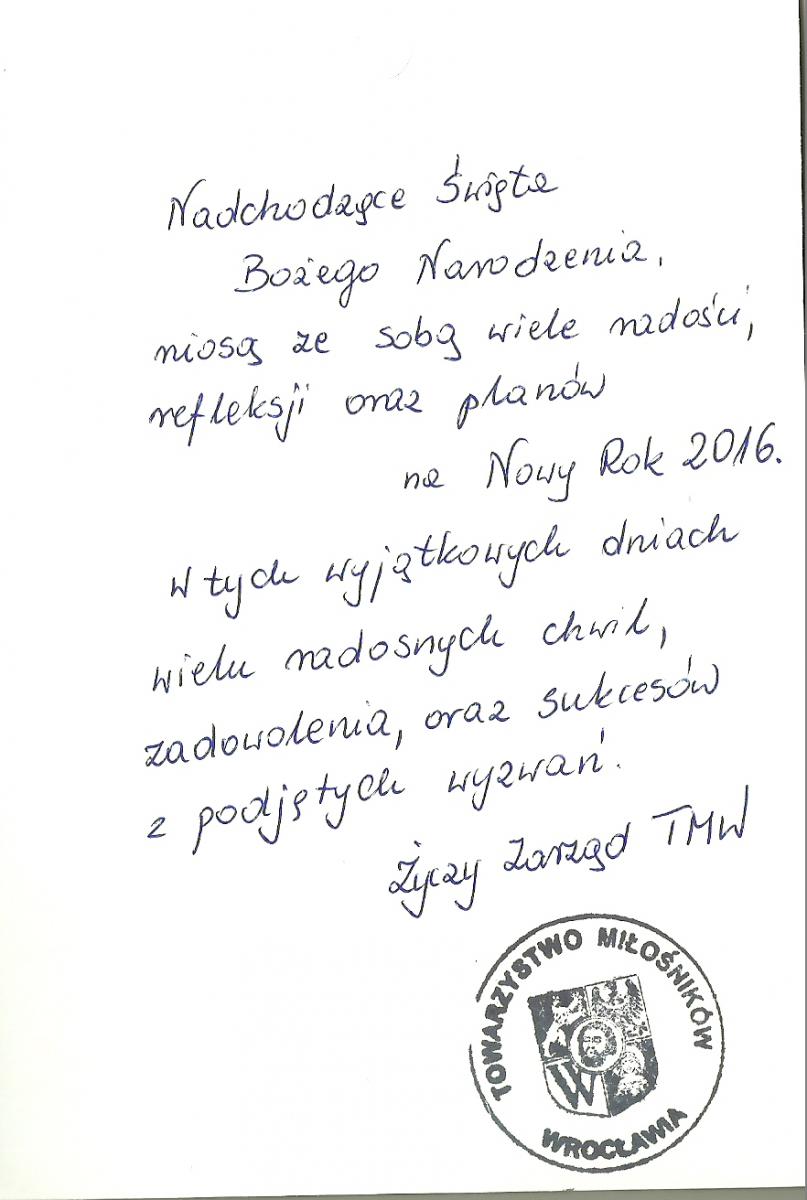 Nadchodzące Święta
Bożego Narodzenia,
niosą ze sobą wiele radości,
refleksji oraz planów
na Nowy Rok 2016.
W tych wyjątkowych dniach
wielu radosnych chwil,
zadowolenia, oraz sukcesów
z podjętych wyzwań.
Życzy Zarząd TMW
TOWARZYSTWO MIŁOŚNIKÓW
W
WROCŁAWIA